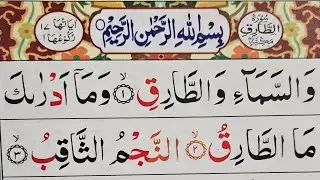 سُورَةُ الطَّارِقِ مَكِّيَّةٌ
بِسْمِ اللهِ الرَّحْمٰنِ الرَّحِيْمِ
اٰيَاتُهَا ١٧ رُكُوْعُهَا ١
وَالسَّمَآءِ وَالطَّارِقِ ۙ﴿١﴾ وَمَآ اَدْرٰىكَ
مَا الطَّارِقُ ۙ﴿٢﴾ النَّجْمُ الثَّاقِبُ ۙ﴿٣﴾